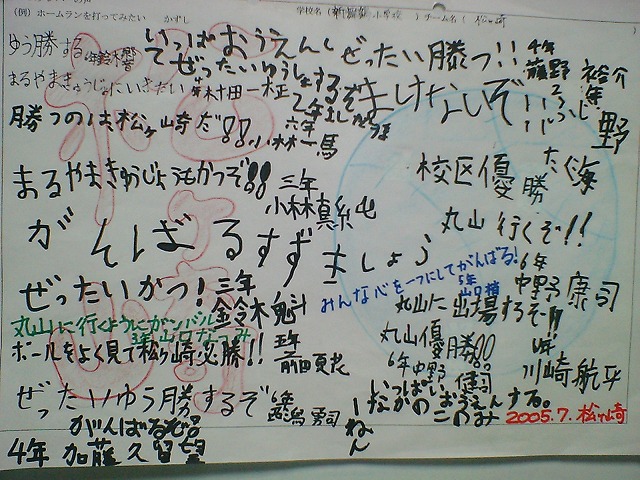 (例) ホームランを打ってみたい かずし
学校名( 小学校 ) チーム名( 松ヶ崎 )
ゆう勝する
いっぱいおうえんし
て ぜったいゆうしょするぞ
ぜったい勝つ!!
4年 藤野 裕介
まるやまきゅうじょにいきたい
村田一柾
2年
まけないぞ!!
勝つのは松ヶ崎だ!!
六年 小林一馬
校区優勝
まるやまきゅうじょうもかつぞ!!
三年
小林真糸
丸山 行くぞ!!
6年
中野 康司
がんばるすずきましょう
ぜったいかつ! 三年
金鈴木魁斗
みんな心を一つにしてがんばる!
5年
山口
丸山に行くようにガンバル
山口なつみ
丸山に出場するぞ!!
ボールをよく見て松ヶ崎必勝!!
前田
丸山優勝!!
6年中野 健司
川崎航平
ぜったいゆう勝するぞ
6年
勇司
いっぱいおうえんする。
なかのこのみ
一ねん
がんばるぞ
4年 加藤久留望
2005.7.松ヶ崎